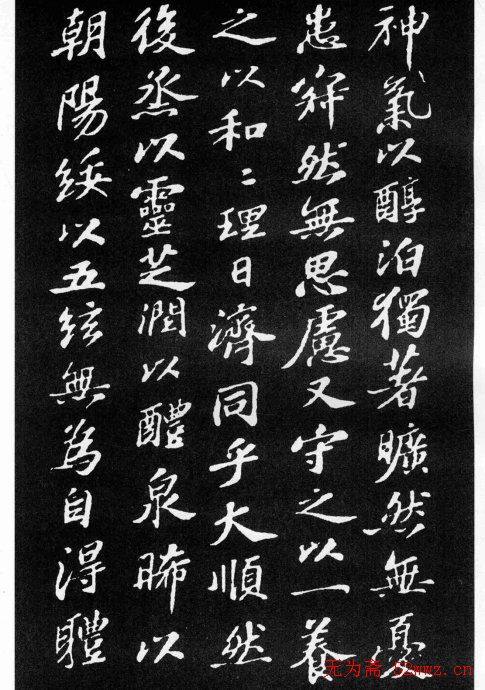 神氣以醇泊獨著曠然無憂
患寂然無思慮又守之以一養
之以和〻理日濟同乎大順然
後蒸以靈芝潤以醴泉晞以
朝陽綏以五絃無為自得體
无为斋 52wwz.cn